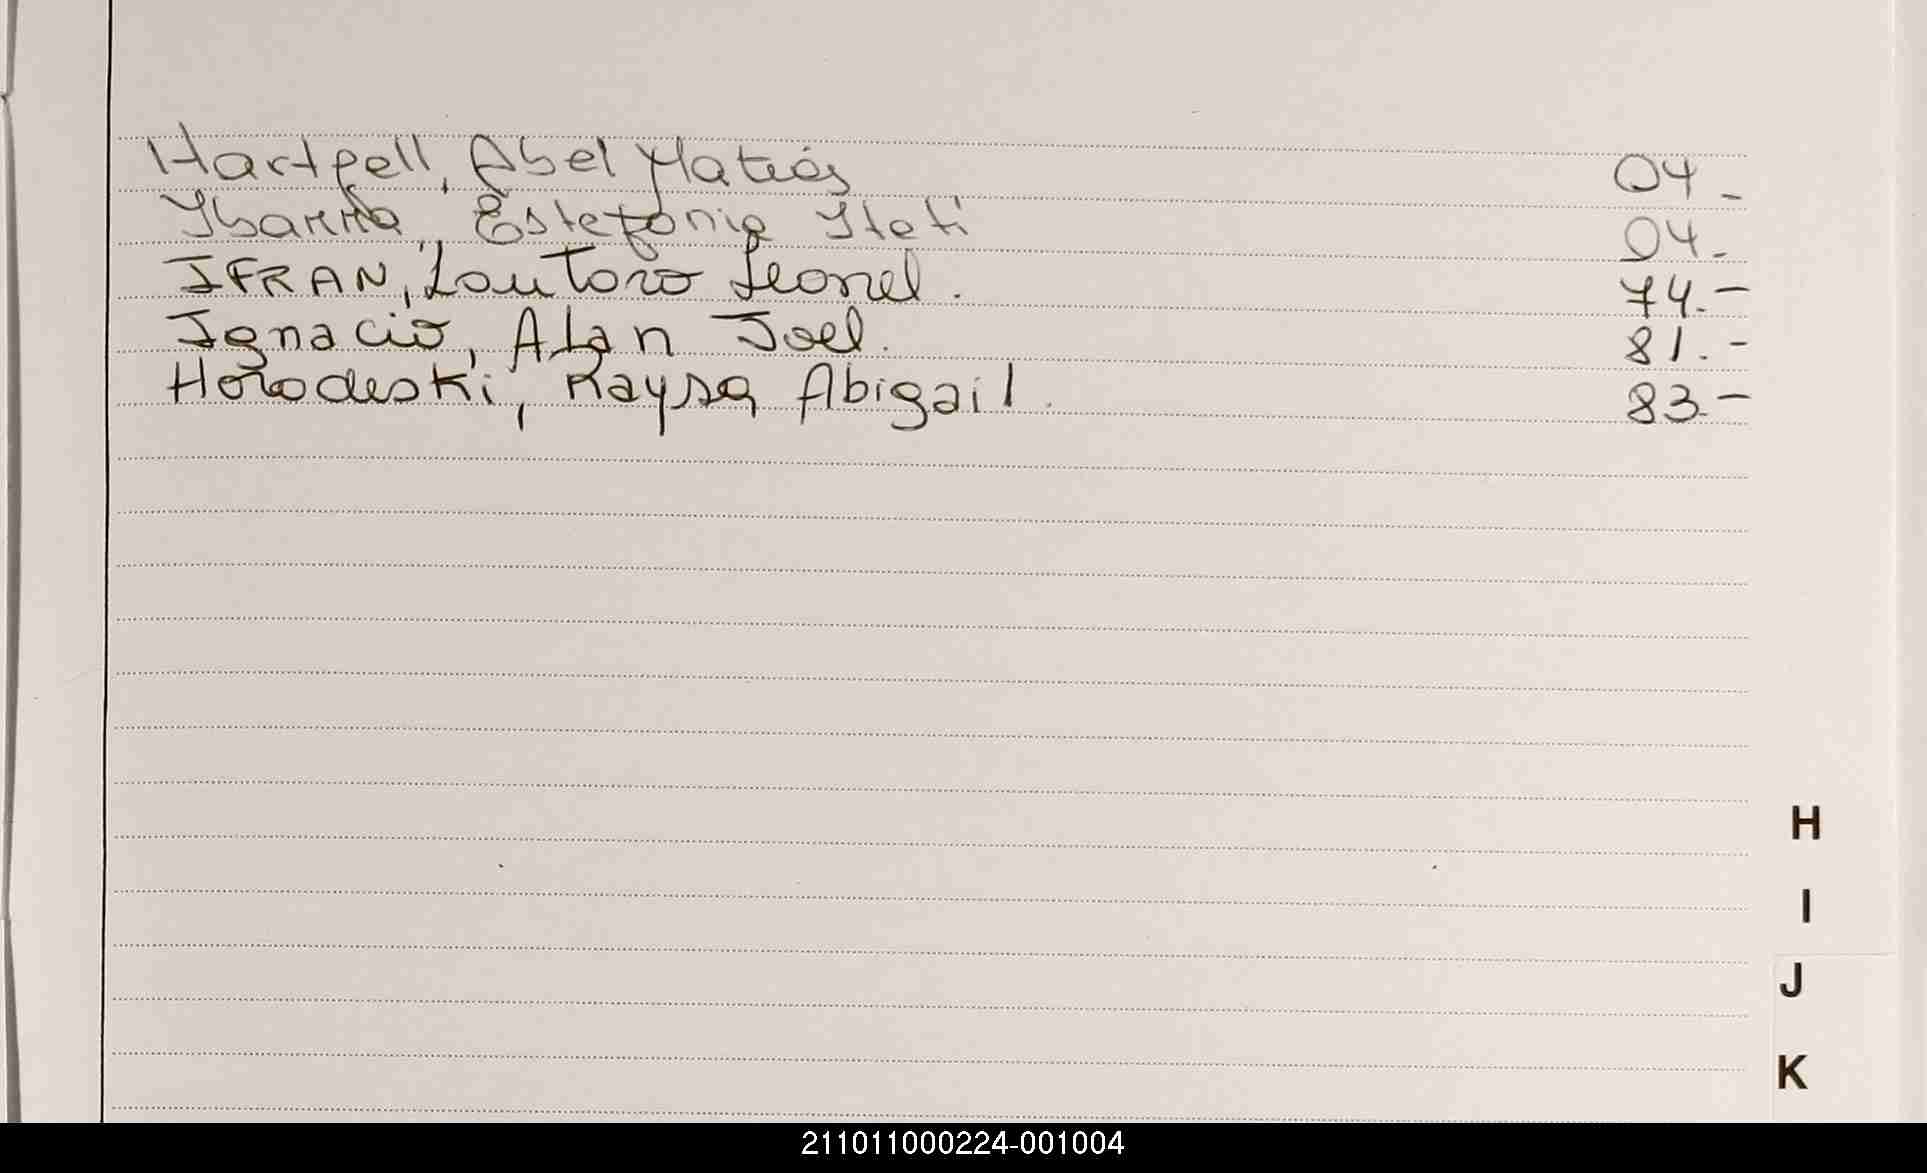 Hartfell, Abel Matías 04_
Ybarra, Estefania Itatí 04._
IFRAN, Lautaro Leonel. 74.-
Ignacio, Alan Joel. 81.-
Horodeski, Raysa Abigail. 83.-
H
I
J
K
211011000224-001004